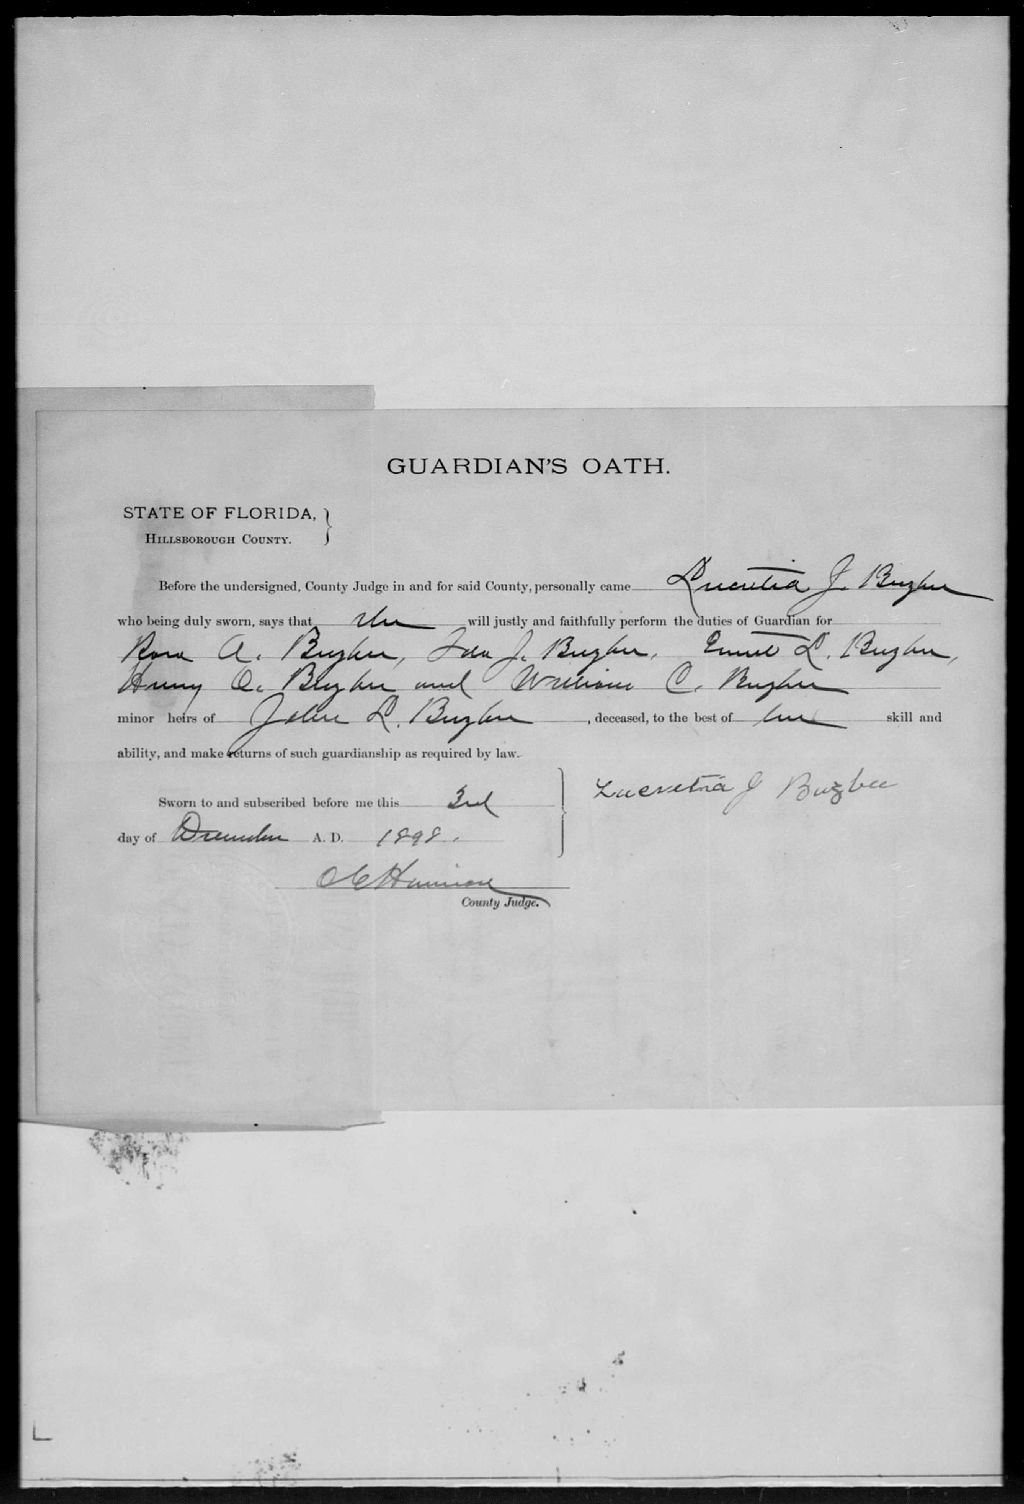 GUARDIAN'S OATH.
STATE OF FLORIDA,
HILLSBOROUGH COUNTY.
Before the undersigned, County Judge in and for said County, personally came Lucretia J. Buzbee
who being duly sworn, says that she will justly and faithfully perform the duties of Guardian for
Rosa A. Buzbee, Ida J. Buzbee, L. Buzbee,
Henry O. Buzbee and William C. Buzbee
minor heirs of John L. Buzbee, deceased, to the best of her skill and
ability, and make returns of such guardianship as required by law.
Lucretia J Buzbee
Sworn to and subscribed before me this 3rd
day of December A. D. 1898.
County Judge.